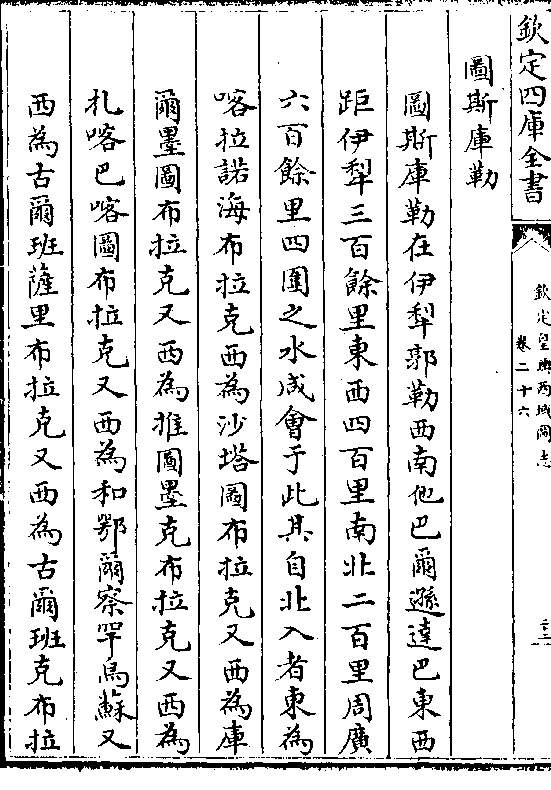 欽定四庫全書
欽定皇輿西域圖志
卷二十六
圖斯庫勒
圖斯庫勒在伊犁郭勒西南他巴爾遜達巴東西
距伊犁三百餘里東西四百里南北二百里周廣
六百餘里四圍之水咸會于此其自北入者東為
喀拉諾海布拉克西為沙塔圖布拉克又西為庫
爾墨圖布拉克又西為推圖墨克布拉克又西為
扎喀巴喀圖布拉克又西為和鄂爾察罕烏蘇又
西為古爾班薩里布拉克又西為古爾班克布拉